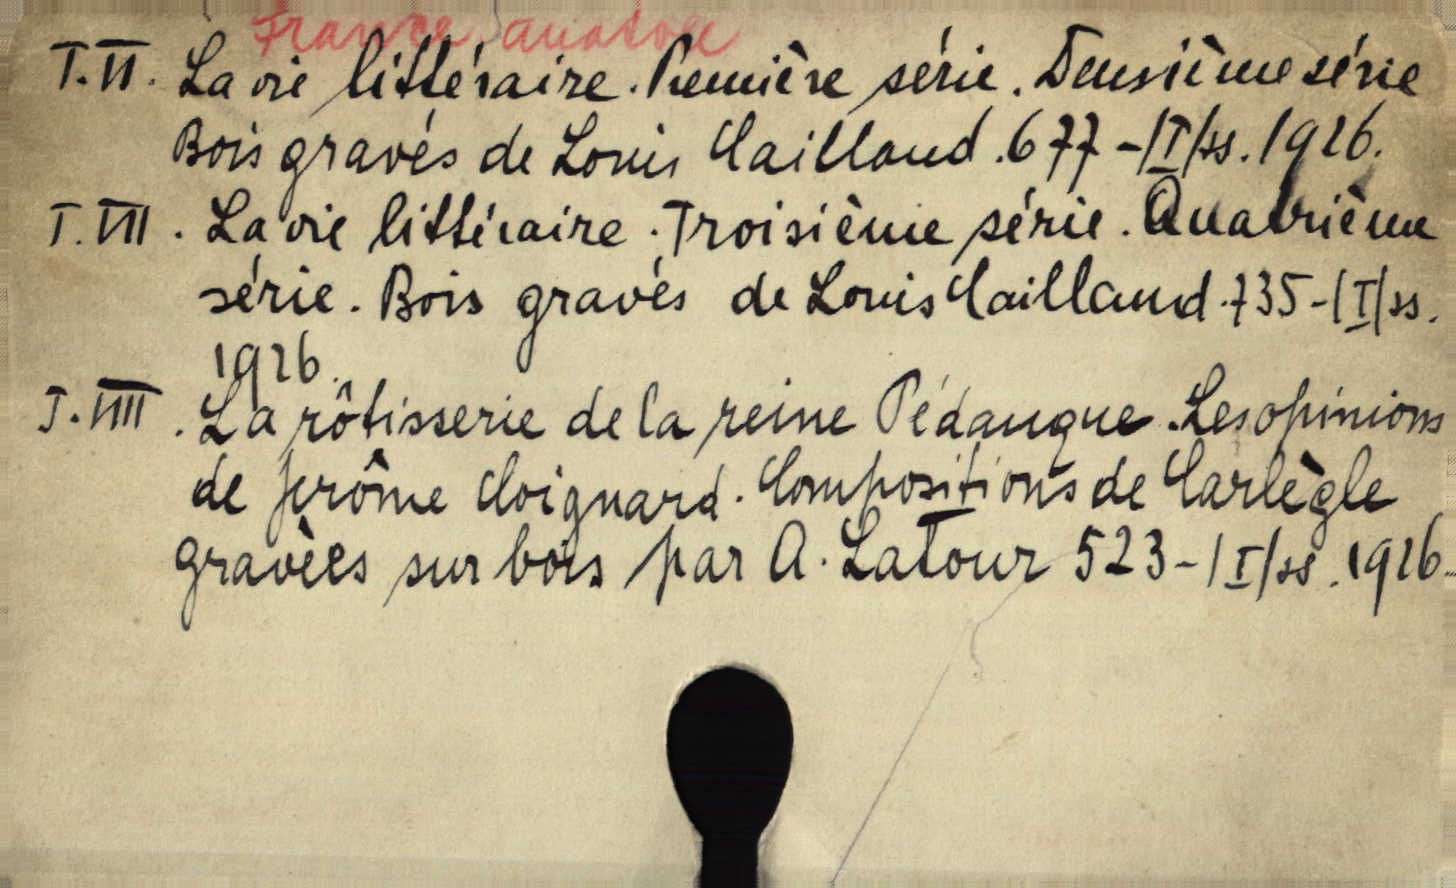 France anatole
T.VI. La vie littéraire. Première série. Deusième série
Bois gravés de Louis Caillaud. 677-/I/ss. 1926.
T.VII. La vie littéraire. Troisième série. Quatrième
série. Bois gravés de Louis Caillaud. 735-/I/ss.
1926.
T.VIII. La rôtisserie de la reine Pédauque. Les opinions
de Jerôme Coignard. Compositions de Carlègle
gravèes sur bois par A. Latour 523-/I/ss. 1926.